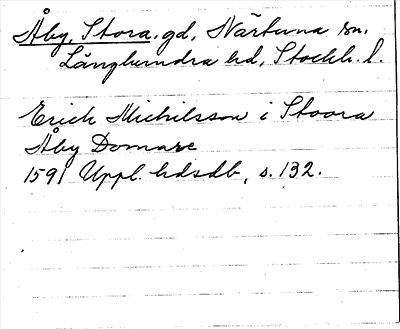 Åby, Stora, gd, Närtuna sn.
Långhundra hd, Stockh. l.
Erich Michelsson i Stoora
Åby Domare
1591 Uppl. hdsdb, s. 132.